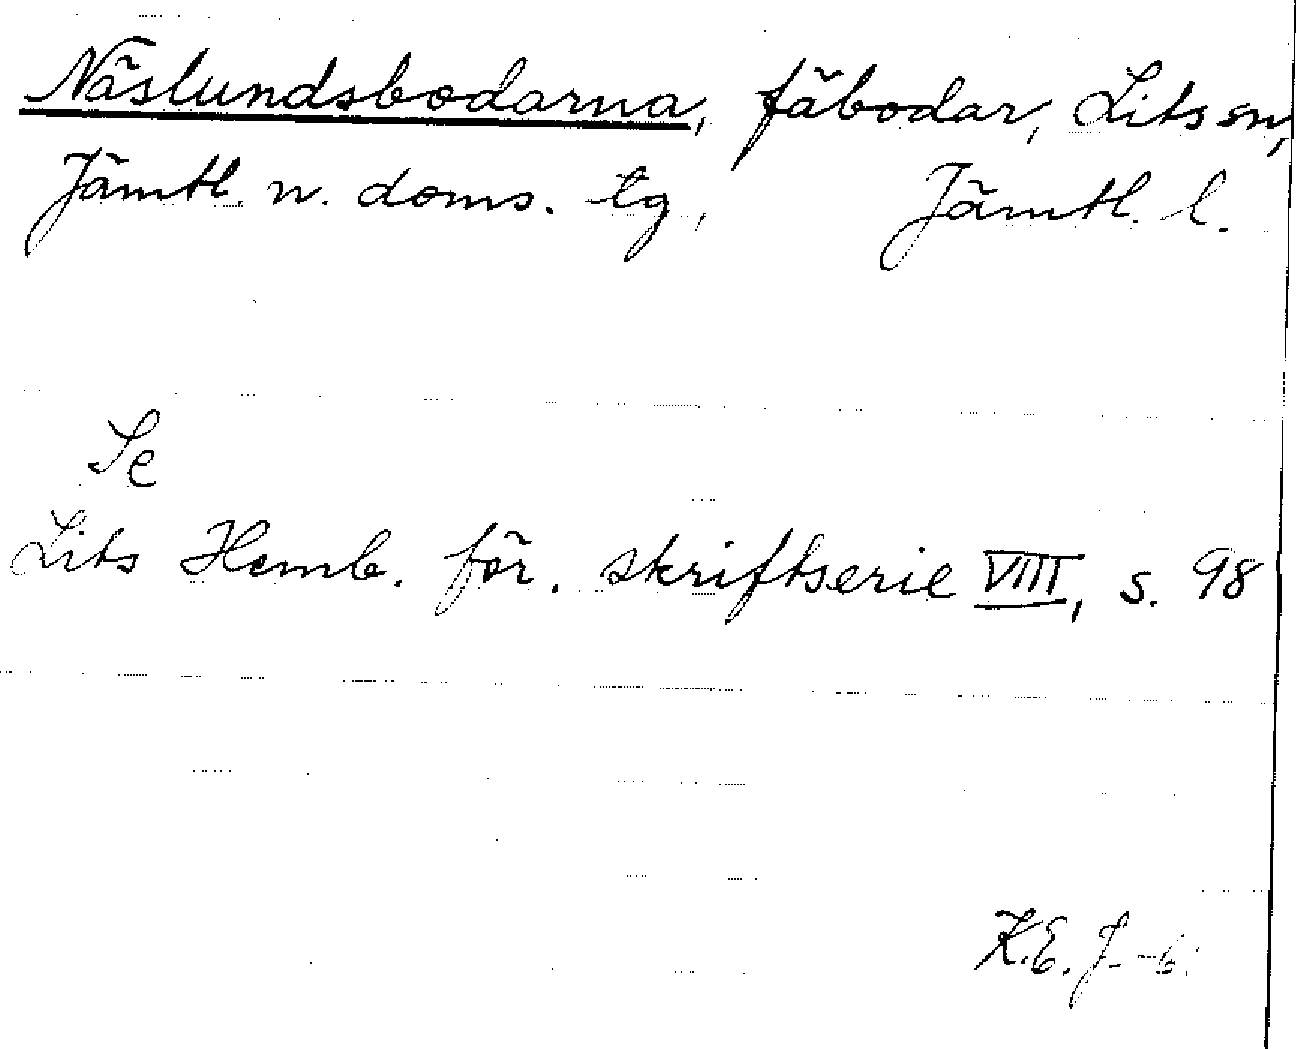 Näslundsbodarna, fäbodar, Lits sn,
Jämtl. n. doms. tg, Jämtl. l.
Se
Lits Hemb. för. skriftserie VIII, s. 98
K.E. J-b.